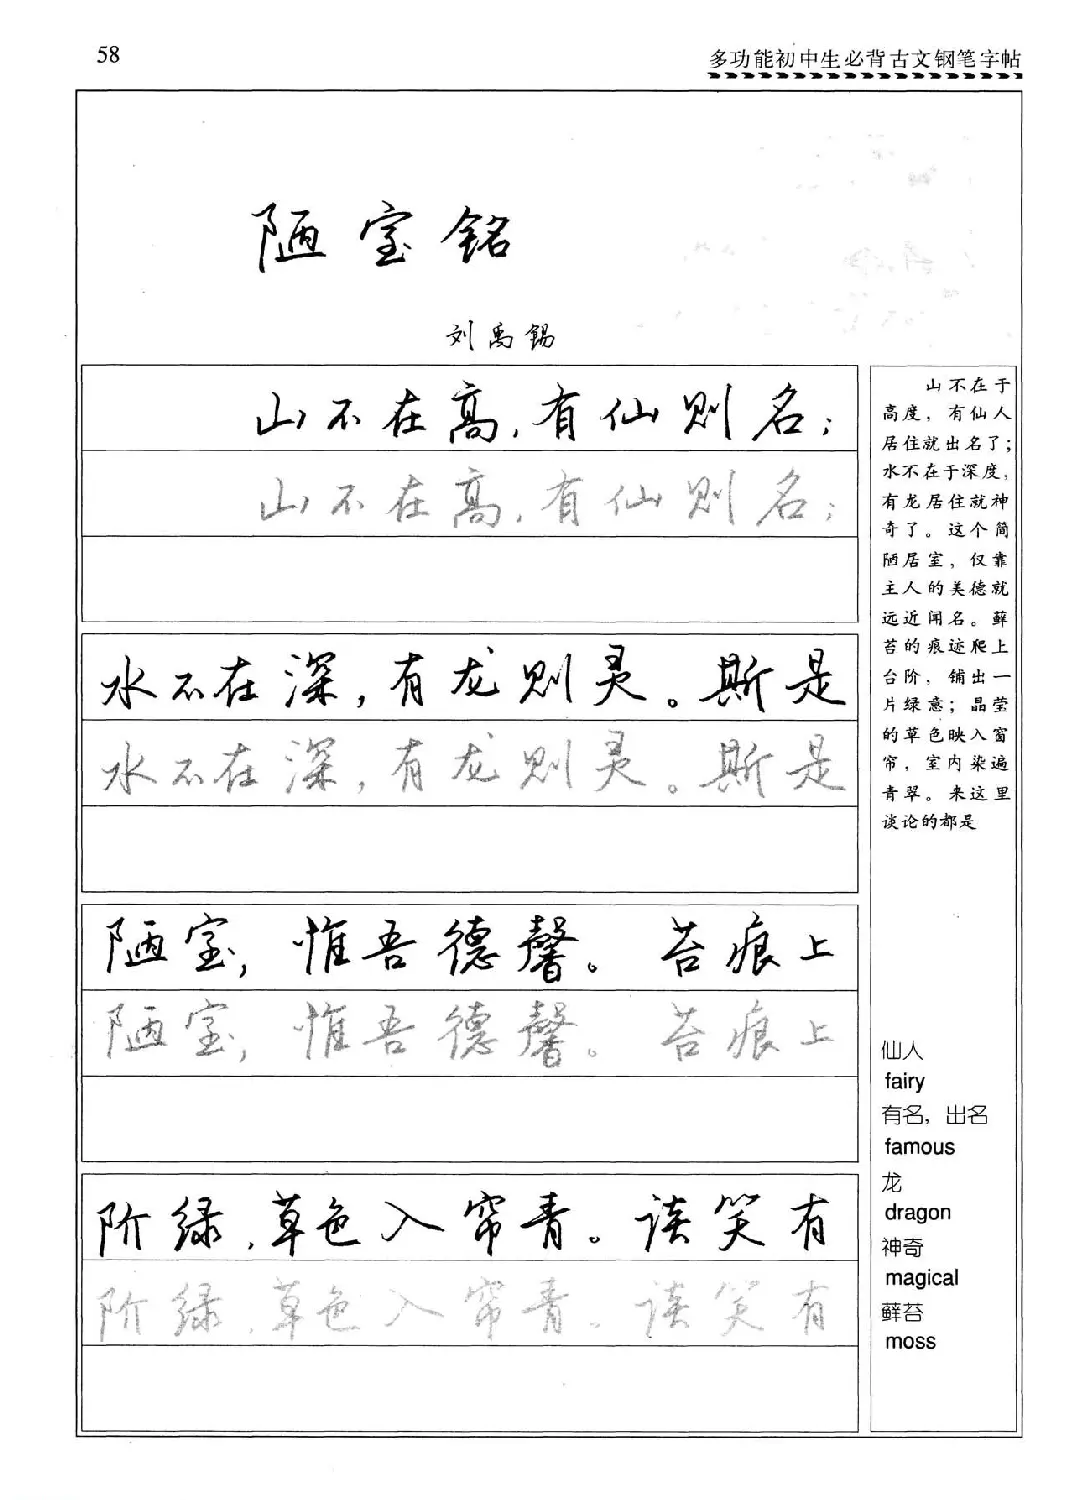 58
多功能初中生必背古文钢笔字帖
陋室铭
刘禹锡
山不在高，有仙则名；
山不在高，有仙则名；
水不在深，有龙则灵。斯是
水不在深，有龙则灵。斯是
陋室，惟吾德馨。苔痕上
陋室，惟吾德馨。苔痕上
阶绿，草色入帘青。谈笑有
阶绿，草色入帘青。谈笑有
山不在于
高度，有仙人
居住就出名了；
水不在于深度，
有龙居住就神
奇了。这个简
陋居室，仅靠
主人的美德就
远近闻名。藓
苔的痕迹爬上
台阶，铺出一
片绿意；晶莹
的草色映入窗
帘，室内染遍
青翠。来这里
谈论的都是
仙人
fairy
有名，出名
famous
龙
dragon
神奇
magical
藓苔
moss